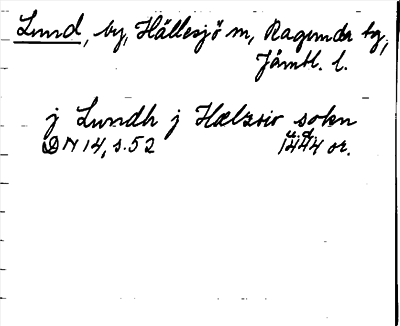 Lund, by, Hällesjö sn, Ragunda tg,
Jämtl. l.
j Lundh j Hælzsio sokn
DN 14, s. 52 1444 or.